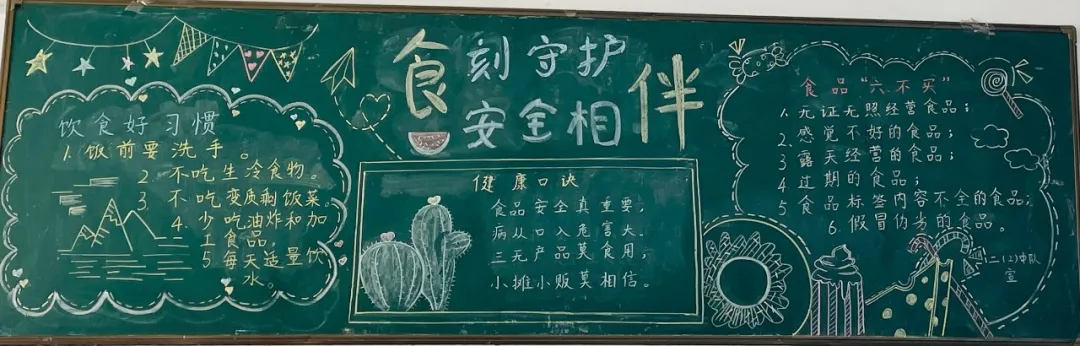 食刻守护
安全相伴
饮食好习惯
1.饭前要洗手。
2.不吃生冷食物。
3.不吃变质剩饭菜。
4.少吃油炸和加
工食品。
5.每天适量饮
水。
健康口诀
食品安全真重要,
病从口入危害大.
三无产品莫食用,
小摊小贩莫相信。
食品“六不买”
1.无证无照经营食品;
2.感觉不好的食品;
3.露天经营的食品;
4.过期的食品;
5.食品标签内容不全的食品;
6.假冒伪劣的食品。
二(2)中队
宣